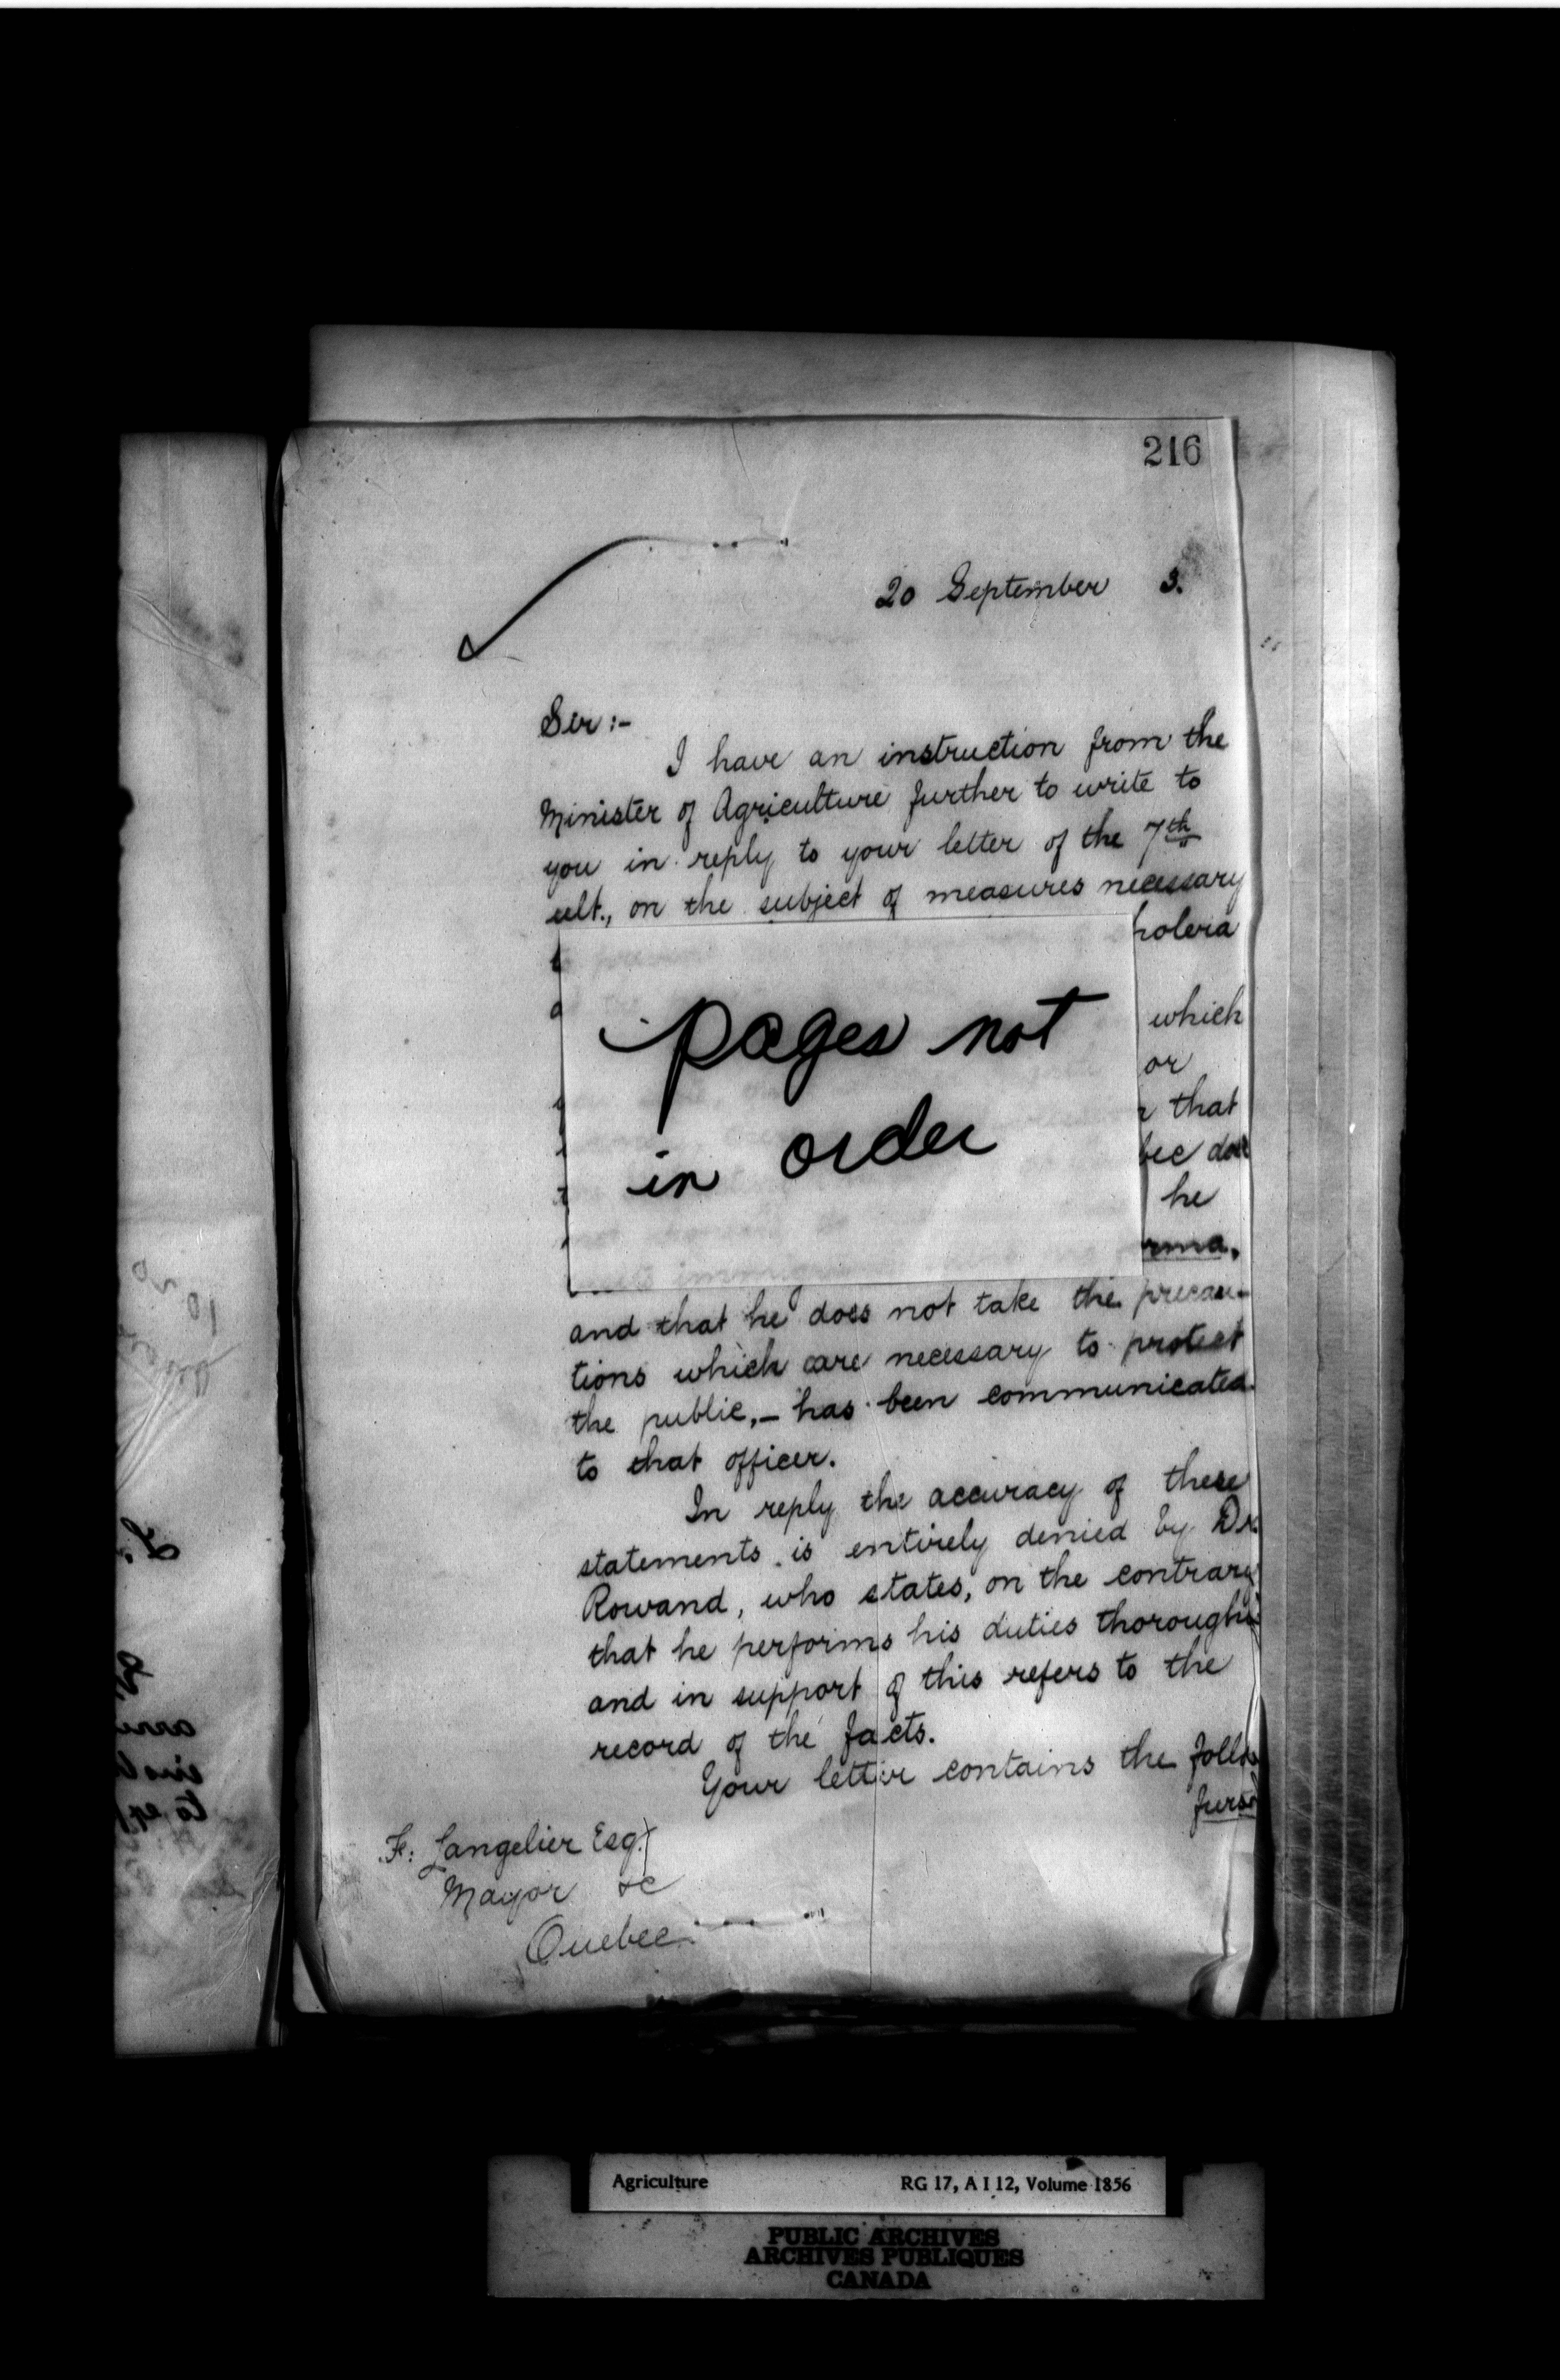 216
20 September 3.
Sir :-
I have an instruction from the
Minister of Agriculture further to write to
you in reply to your letter of the 7th
ult., on the subject of measures necessary
holera
which
or
that
bec does
he
rma,
pages not
in order
and that he does not take the precau-
tions which are necessary to protect
the public, - has been communicated
to that officer.
In reply the accuracy of these
statements is entirely denied by Dr.
Rowand, who states, on the contrary
that he performs his duties thoroughly
and in support of this refers to the
record of the facts.
Your letter contains the follo
F. Langelier Esq.
Mayor &c
Quebec.
Agriculture RG 17, A I 12, Volume 1856
PUBLIC ARCHIVES
ARCHIVES PUBLIQUES
CANADA